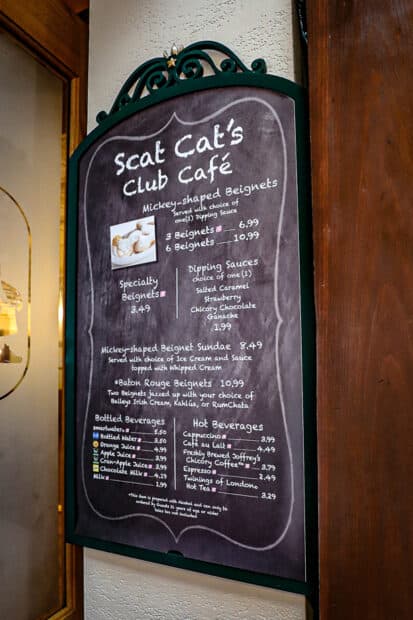 Scat Cat's
Club Café
Mickey-shaped Beignets
Served with choice of
one(1) Dipping Sauce
3 Beignets 6.99
6 Beignets 10.99
Specialty
Beignets
3.49
Dipping Sauces
choice of one(1)
Salted Caramel
Strawberry
Chicory Chocolate
Ganache
1.99
Mickey-shaped Beignet Sundae 8.49
Served with choice of Ice Cream and Sauce
topped with Whipped Cream
*Baton Rouge Beignets 10.99
Two Beignets jazzed up with your choice of
Baileys Irish Cream, Kahlúa, or RumChata
Bottled Beverages
smartwater® 5.50
Bottled Water 3.50
Orange Juice 4.99
Apple Juice 3.99
Cran-Apple Juice 3.99
Chocolate Milk 4.29
Milk 1.99
Hot Beverages
Cappuccino 3.99
Café au Lait 4.49
Freshly Brewed Joffrey's
Chicory Coffee™ 3.79
Espresso 2.49
Twinings of London®
Hot Tea 3.29
*This item is prepared with Alcohol and can only be
ordered by Guests 21 years of age or older
Sales tax not included